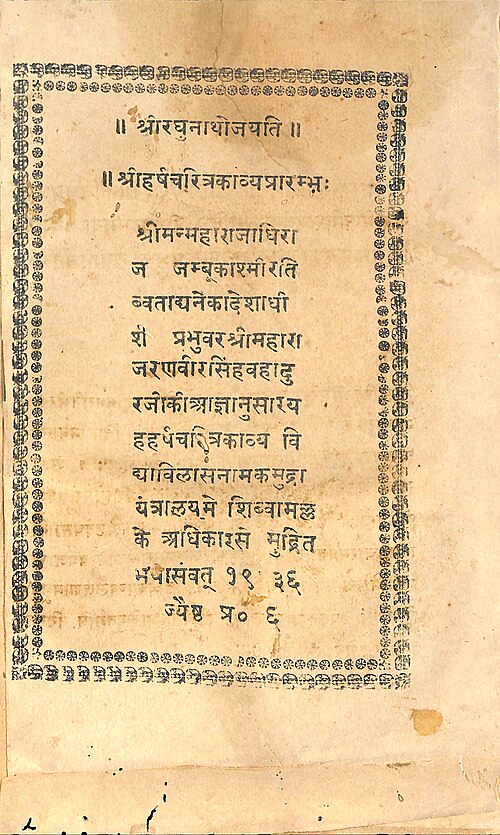 ॥ श्रीरघुनाथोजयति ॥
॥ श्रीहर्षचरित्रकाव्यप्रारम्भः
श्रीमन्महाराजाधिरा
ज जम्बूकाश्मीरति
ब्वताद्यनेकादेशाधी
श प्रभुवरश्रीमहारा
जरणवीरसिंहवहादु
रजीकीआज्ञानुसारय
हहर्षचरित्रकाव्य वि
द्याविलासनामकमुद्रा
यंत्रालयमे शिब्बामल्ल
के अधिकारसे मुद्रित
भयासंवत् १९ ३६
ज्यैष्ठ प्र० ६